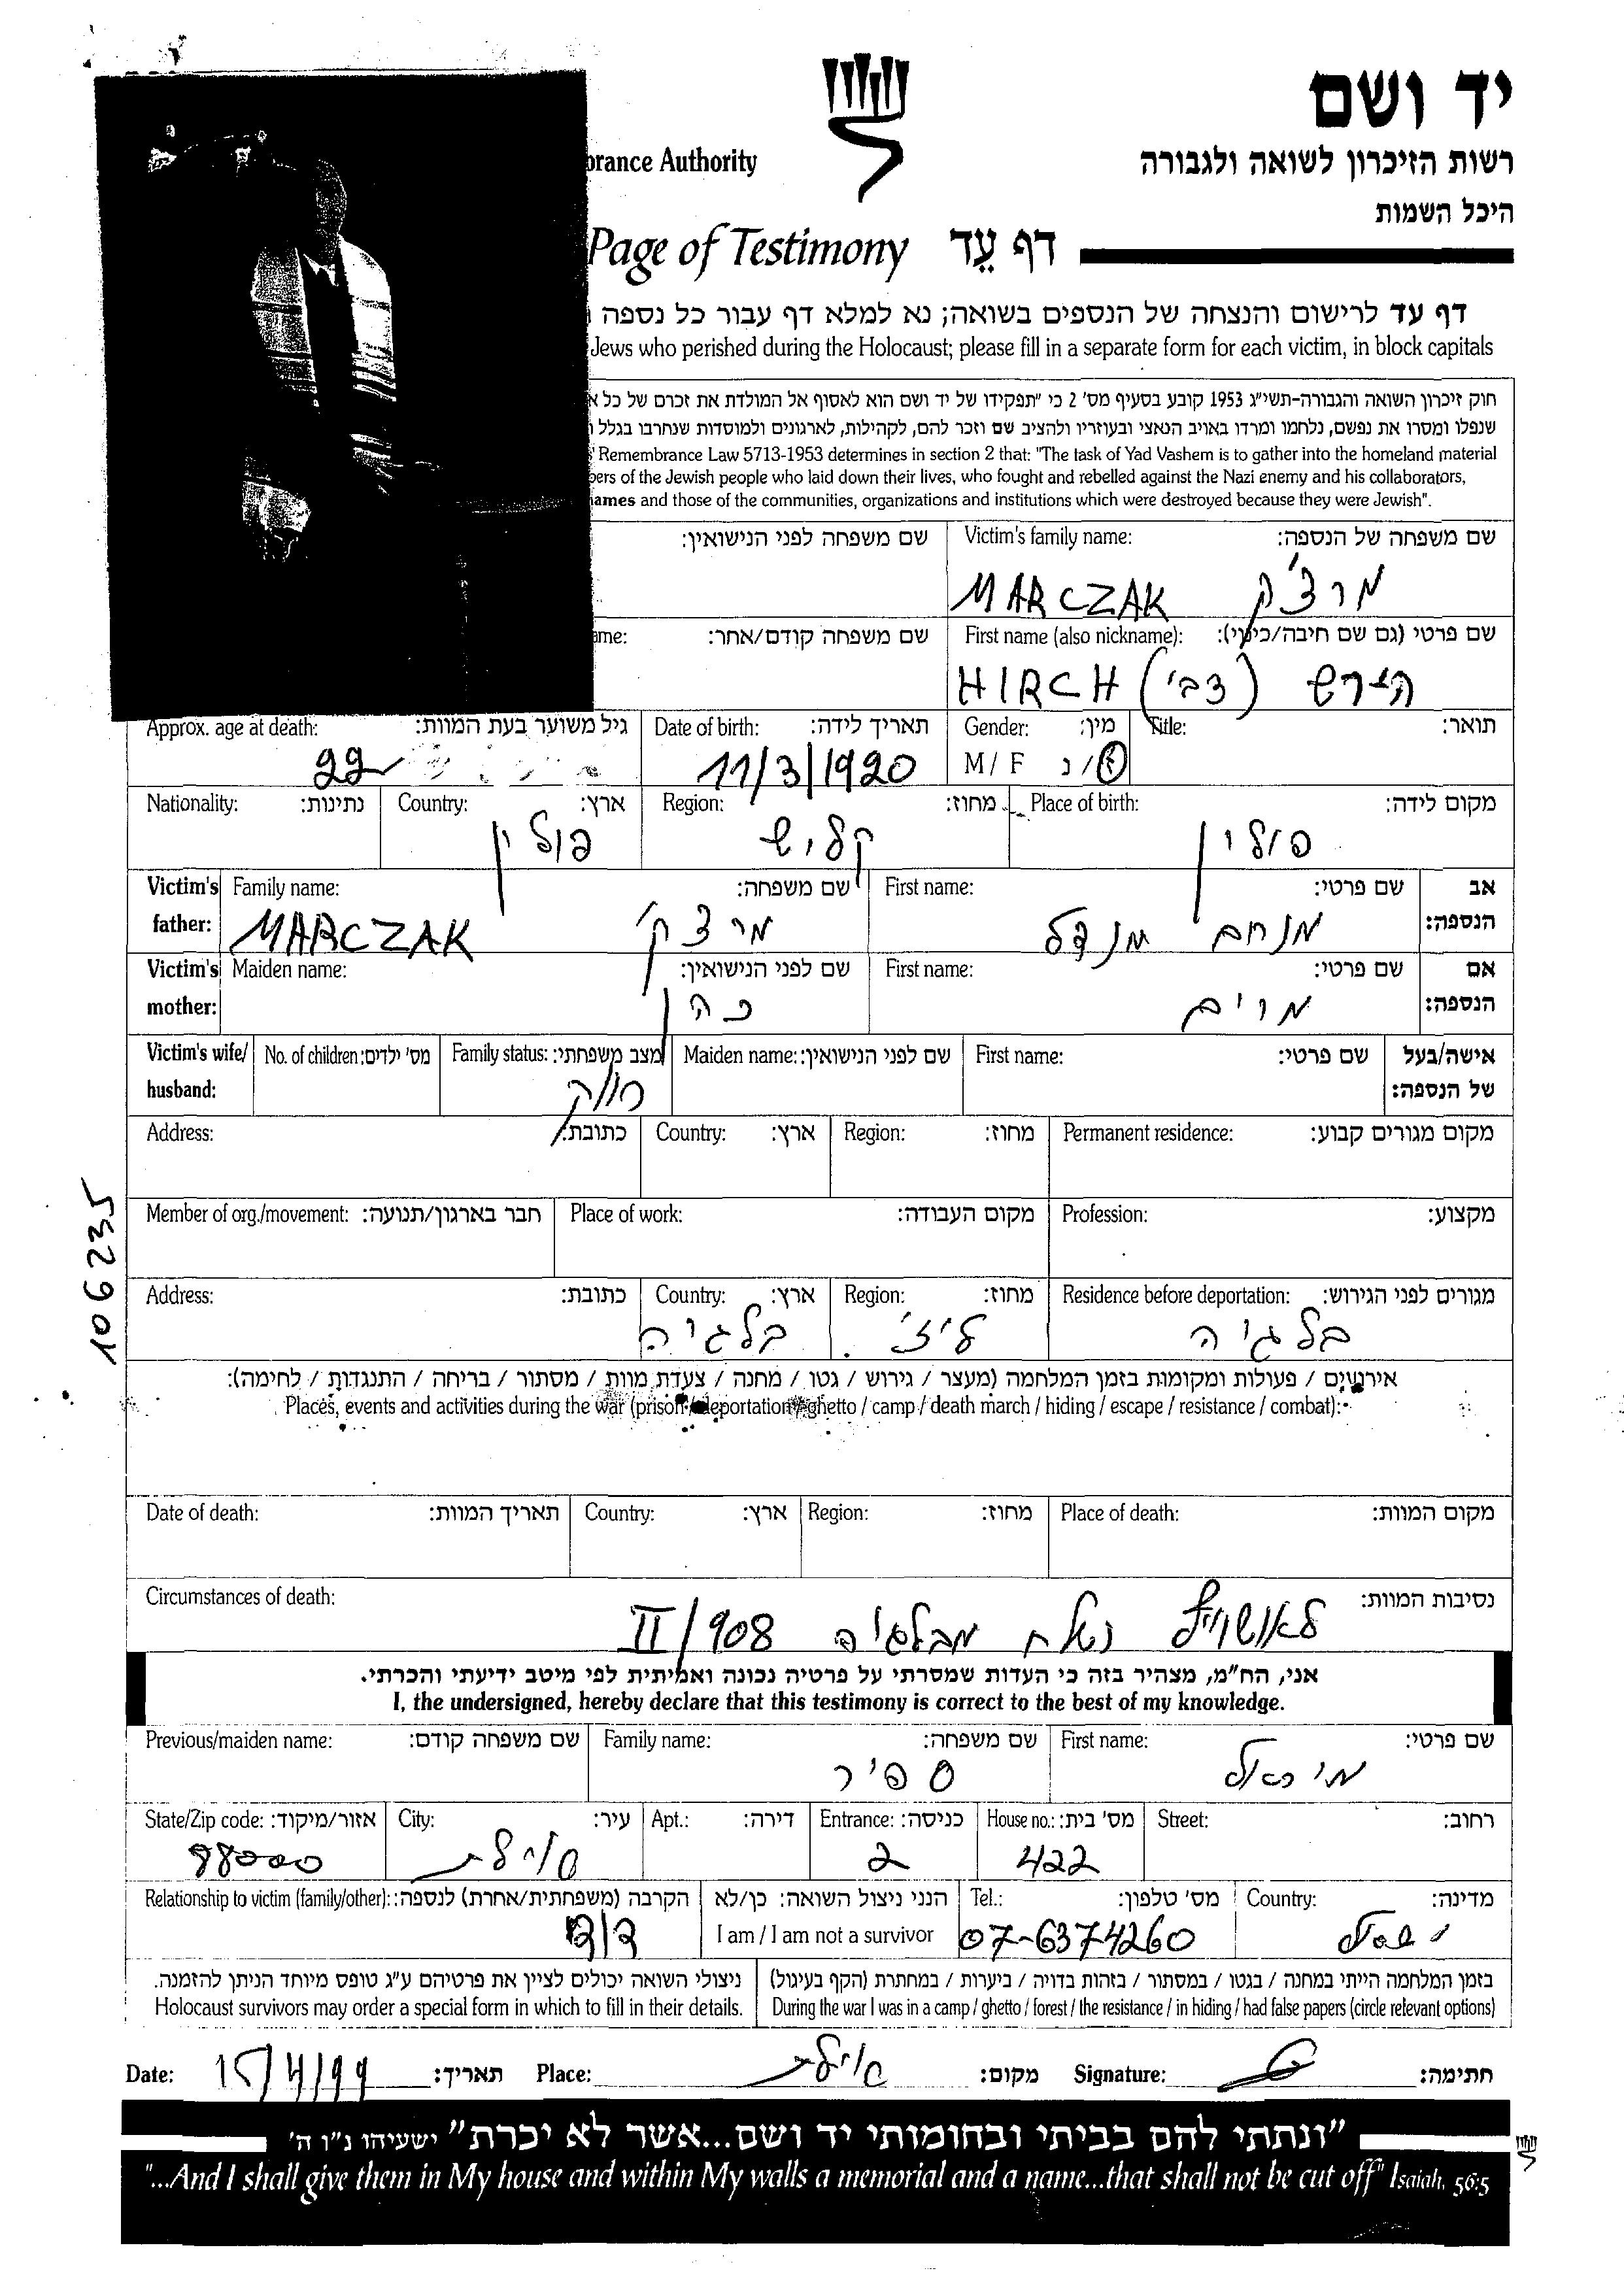 יד ושם
רשות הזיכרון לשואה ולגבורה
היכל השמות
Authority
Page of Testimony דף עֵד
דף עד לרישום והנצחה של הנספים בשואה; נא למלא דף עבור כל נספה
Jews who perished during the Holocaust; please fill in a separate form for each victim, in block capitals
חוק זיכרון השואה והגבורה-תשי״ג 1953 קובע בסעיף מס' 2 כי ״תפקידו של יד ושם הוא לאסוף אל המולדת את זכרם של כל
שנפלו ומסרו את נפשם, נלחמו ומרדו באויב הנאצי ובעוזריו ולהציב שם וזכר להם, לקהילות, לארגונים ולמוסדות שנחרבו בגלל
Remembrance Law 5713-1953 determines in section 2 that: "The task of Yad Vashem is to gather into the homeland material
of the Jewish people who laid down their lives, who fought and rebelled against the Nazi enemy and his collaborators,
and those of the communities, organizations and institutions which were destroyed because they were Jewish".
שם משפחה לפני הנישואין: Victim's family name: שם משפחה של הנספה:
MARCZAK מרצ'ק
שם משפחה קודם/אחר: First name (also nickname): שם פרטי (גם שם חיבה/כינוי):
HIRCH (צבי) הירש
Approx. age at death: גיל משוער בעת המוות: Date of birth: תאריך לידה: Gender: מין: Title: תואר:
22 11/3/1920 M / F ז/נ
Nationality: נתינות: Country: ארץ: Region: מחוז: Place of birth: מקום לידה:
פולין קליש פולין
Victim's father: Family name: שם משפחה: First name: שם פרטי: אב הנספה:
MARCZAK מרצ'ק מנחם מנדל
Victim's mother: Maiden name: שם לפני הנישואין: First name: שם פרטי: אם הנספה:
כהן מרים
Victim's wife/ husband: No. of children: מס' ילדים: Family status: מצב משפחתי: Maiden name: שם לפני הנישואין: First name: שם פרטי: אישה/בעל של הנספה:
רווק
Address: כתובת: Country: ארץ: Region: מחוז: Permanent residence: מקום מגורים קבוע:
Member of org./movement: חבר בארגון/תנועה: Place of work: מקום העבודה: Profession: מקצוע:
106235
Address: כתובת: Country: ארץ: Region: מחוז: Residence before deportation: מגורים לפני הגירוש:
בלגיה ליז' בלגיה
אירועים / פעולות ומקומות בזמן המלחמה (מעצר / גירוש / גטו / מחנה / צעדת מוות / מסתור / בריחה / התנגדות / לחימה):
Places, events and activities during the war (prison / deportation / ghetto / camp / death march / hiding / escape / resistance / combat):
Date of death: תאריך המוות: Country: ארץ: Region: מחוז: Place of death: מקום המוות:
Circumstances of death: נסיבות המוות:
לאושוויץ נשלח מבלגיה II/908
אני, הח״מ, מצהיר בזה כי העדות שמסרתי על פרטיה נכונה ואמיתית לפי מיטב ידיעתי והכרתי.
I, the undersigned, hereby declare that this testimony is correct to the best of my knowledge.
Previous/maiden name: שם משפחה קודם: Family name: שם משפחה: First name: שם פרטי:
ספיר מיכאל
State/Zip code: אזור/מיקוד: City: עיר: Apt.: דירה: Entrance: כניסה: House no.: מס' בית: Street: רחוב:
88000 אילת 2 422
Relationship to victim (family/other): הקרבה (משפחתית/אחרת) לנספה: הנני ניצול השואה: כן/לא Tel.: מס' טלפון: Country: מדינה:
I am / I am not a survivor 07-6374260 ישראל
ניצולי השואה יכולים לציין את פרטיהם ע״ג טופס מיוחד הניתן להזמנה. בזמן המלחמה הייתי במחנה / בגטו / במסתור / בזהות בדויה / ביערות / במחתרת (הקף בעיגול)
Holocaust survivors may order a special form in which to fill in their details. During the war I was in a camp / ghetto / forest / the resistance / in hiding / had false papers (circle relevant options)
Date: 15/4/99 תאריך: Place: אילת מקום: Signature: חתימה:
״ונתתי להם בביתי ובחומותי יד ושם...אשר לא יכרת״ ישעיהו נ״ו ה'
"...And I shall give them in My house and within My walls a memorial and a name...that shall not be cut off" Isaiah, 56:5